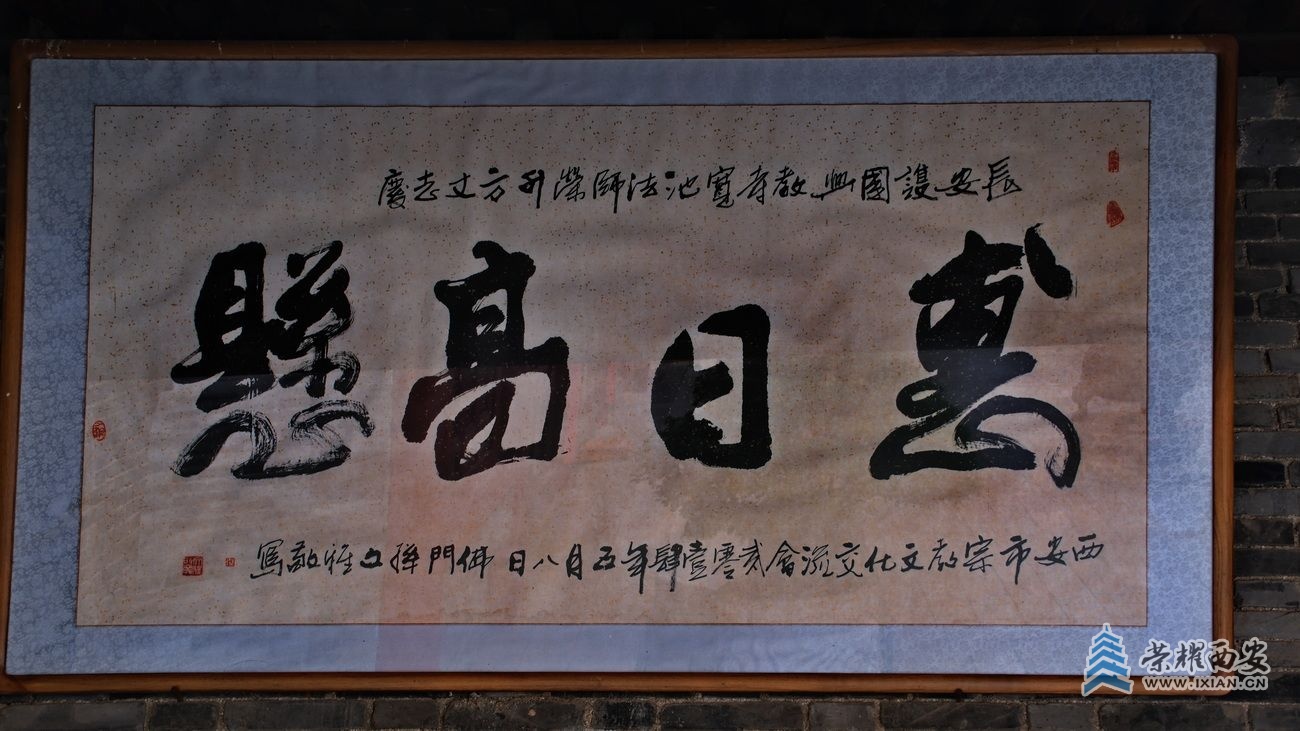 長安護國興教寺寬池法師榮升方丈志慶
惠日高懸
西安市宗教文化交流會貳零壹肆年五月八日 佛門 雅敬寫
荣耀西安
WWW.IXIAN.CN